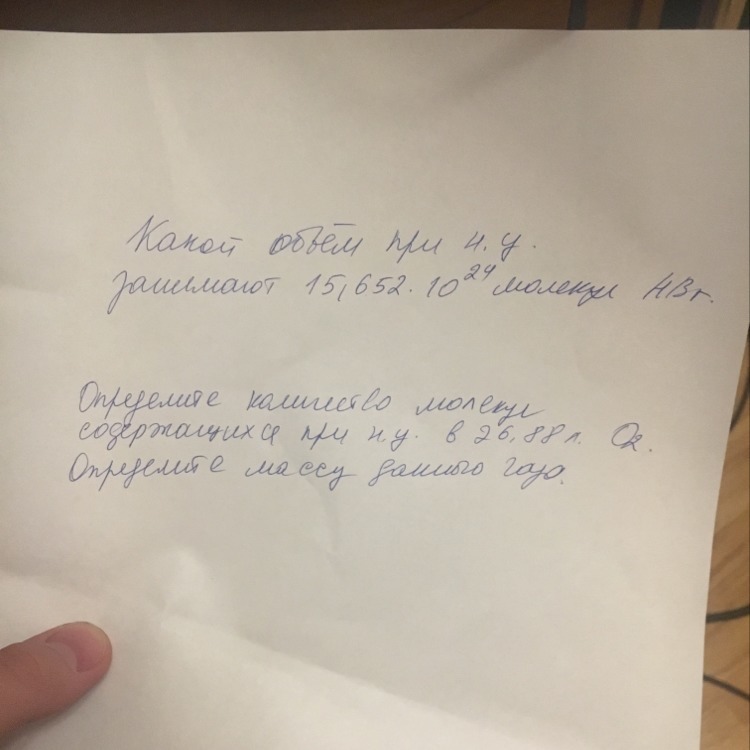 Какой объём при н.у.
занимают 15,652·10²⁴ молекул HBr.
Определите количество молекул
содержащихся при н.у. в 26,88 л. O₂.
Определите массу данного газа.